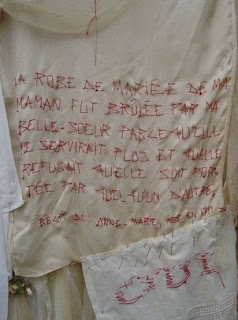 LA ROBE DE MARIÉE DE MA
MAMAN FUT BRÛLÉE PAR MA
BELLE-SOEUR PARCE QU'ELLE
NE SERVIRAIT PLUS ET QU'ELLE
REFUSAIT QU'ELLE SOIT POR-
TÉE PAR QUELQU'UN D'AUTRE.
RÉCIT DE: ANNE-MARIE,